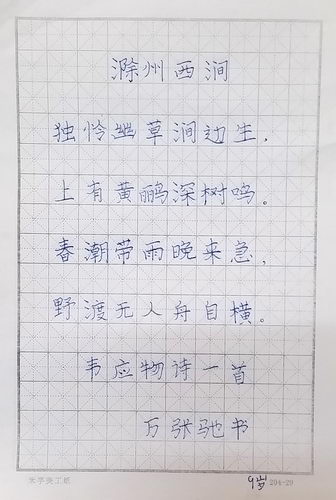 滁州西涧
独怜幽草涧边生，
上有黄鹂深树鸣。
春潮带雨晚来急，
野渡无人舟自横。
韦应物诗一首
万张驰书
米字美工纸
9岁 204-20